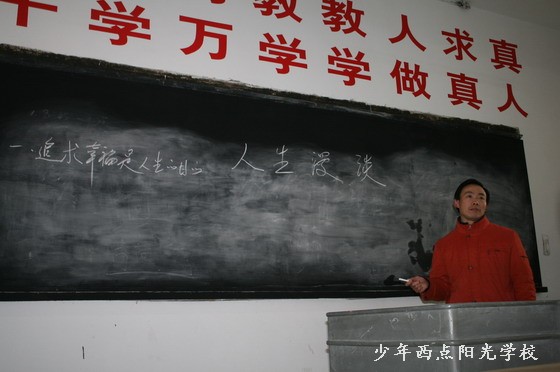 教教人求真
千学万学学做真人
一.追求幸福是人生的目的 人生漫谈
少年西点阳光学校